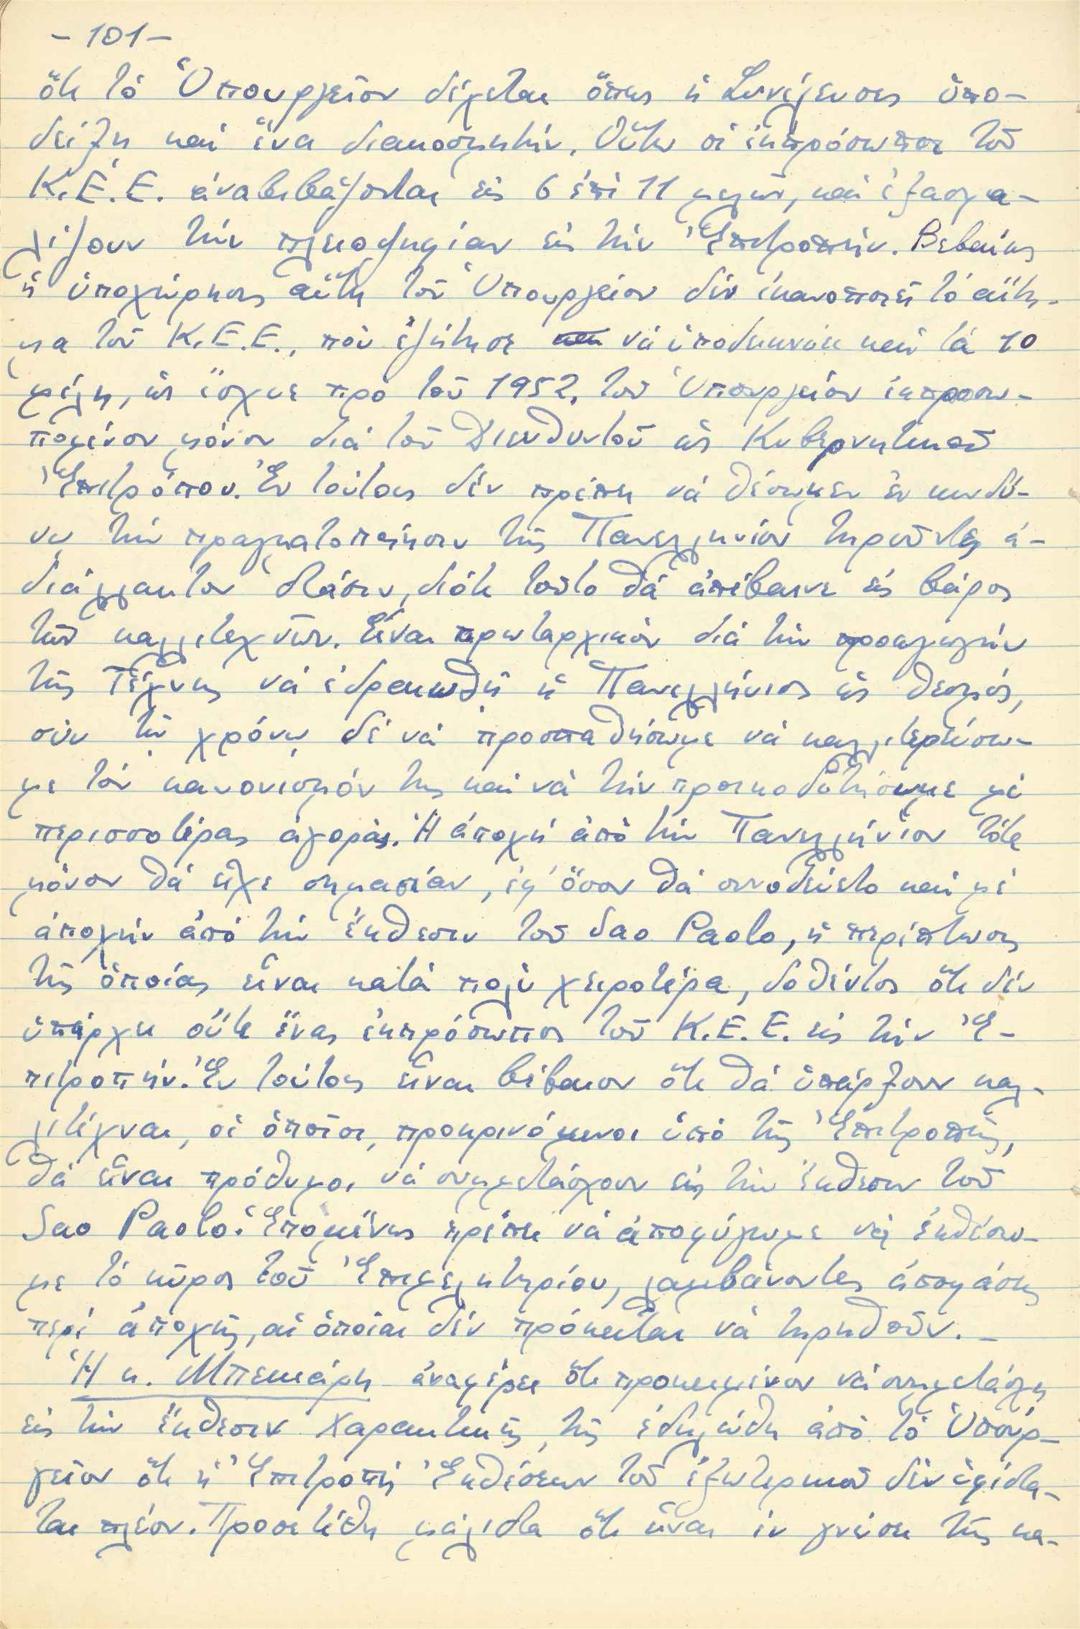 - 101 -
ὅτι τὸ Ὑπουργεῖον δέχεται ὅπως ἡ Συνέλευσις ὑπο-
δείξῃ καὶ ἕνα διακοσμητήν. Οὕτω οἱ ἐκπρόσωποι τοῦ
Κ.Ε.Ε. ἀναβιβάζονται εἰς 6 ἐπὶ 11 μελῶν, καὶ ἐξασφα-
λίζουν τὴν πλειοψηφίαν εἰς τὴν Ἐπιτροπήν. Βεβαίως
ἡ ὑποχώρησις αὕτη τοῦ Ὑπουργείου δὲν ἱκανοποιεῖ τὸ αἴτη-
μα τοῦ Κ.Ε.Ε., ποὺ ἐζήτησε νὰ ὑποδεικνύῃ καὶ τὰ 10
μέλη, ὡς ἴσχυε πρὸ τοῦ 1952, τοῦ Ὑπουργείου ἐκπροσω-
πουμένου μόνον διὰ τοῦ Διευθυντοῦ ὡς Κυβερνητικοῦ
Ἐπιτρόπου. Ἐν τούτοις δὲν πρέπει νὰ θέσωμεν ἐν κινδύ-
νῳ τὴν πραγματοποίησιν τῆς Πανελληνίου τηροῦντες ἀ-
διάλλακτον στάσιν, διότι τοῦτο θὰ ἀπέβαινε εἰς βάρος
τῶν καλλιτεχνῶν. Εἶναι πρωταρχικὸν διὰ τὴν προαγωγὴν
τῆς Τέχνης νὰ ἑδραιωθῇ ἡ Πανελλήνιος ὡς θεσμός,
σὺν τῷ χρόνῳ δὲ νὰ προσπαθήσωμε νὰ καλλιτερεύσω-
με τὸν κανονισμόν της καὶ νὰ τὴν προικοδοτήσωμε μὲ
περισσοτέρας ἀγοράς. Ἡ ἀποχὴ ἀπὸ τὴν Πανελλήνιον τότε
μόνον θὰ εἶχε σημασίαν, ἐφ' ὅσον θὰ συνοδεύετο καὶ μὲ
ἀποχὴν ἀπὸ τὴν ἔκθεσιν τοῦ Sao Paolo, ἡ περίπτωσις
τῆς ὁποίας εἶναι κατὰ πολὺ χειροτέρα, δοθέντος ὅτι δὲν
ὑπάρχει οὔτε ἕνας ἐκπρόσωπος τοῦ Κ.Ε.Ε. εἰς τὴν Ἐ-
πιτροπήν. Ἐν τούτοις εἶναι βέβαιον ὅτι θὰ ὑπάρξουν καλ-
λιτέχναι, οἱ ὁποῖοι, προκρινόμενοι ὑπὸ τῆς Ἐπιτροπῆς,
θὰ εἶναι πρόθυμοι νὰ συμμετάσχουν εἰς τὴν ἔκθεσιν τοῦ
Sao Paolo. Ἑπομένως πρέπει νὰ ἀποφύγωμε νὰ ἐκθέσω-
με τὸ κῦρος τοῦ Ἐπιμελητηρίου, λαμβάνοντες ἀποφάσεις
περὶ ἀποχῆς, αἱ ὁποῖαι δὲν πρόκειται νὰ τηρηθοῦν. -
Ἡ κ. Μπεκιάρη ἀναφέρει ὅτι προκειμένου νὰ συμμετάσχῃ
εἰς τὴν ἔκθεσιν Χαρακτικῆς, τῆς ἐδηλώθη ἀπὸ τὸ Ὑπουρ-
γεῖον ὅτι ἡ Ἐπιτροπὴ Ἐκθέσεων τοῦ ἐξωτερικοῦ δὲν ὑφίστα-
ται πλέον. Προσετέθη μάλιστα ὅτι εἶναι ἐν γνώσει τῆς κα-